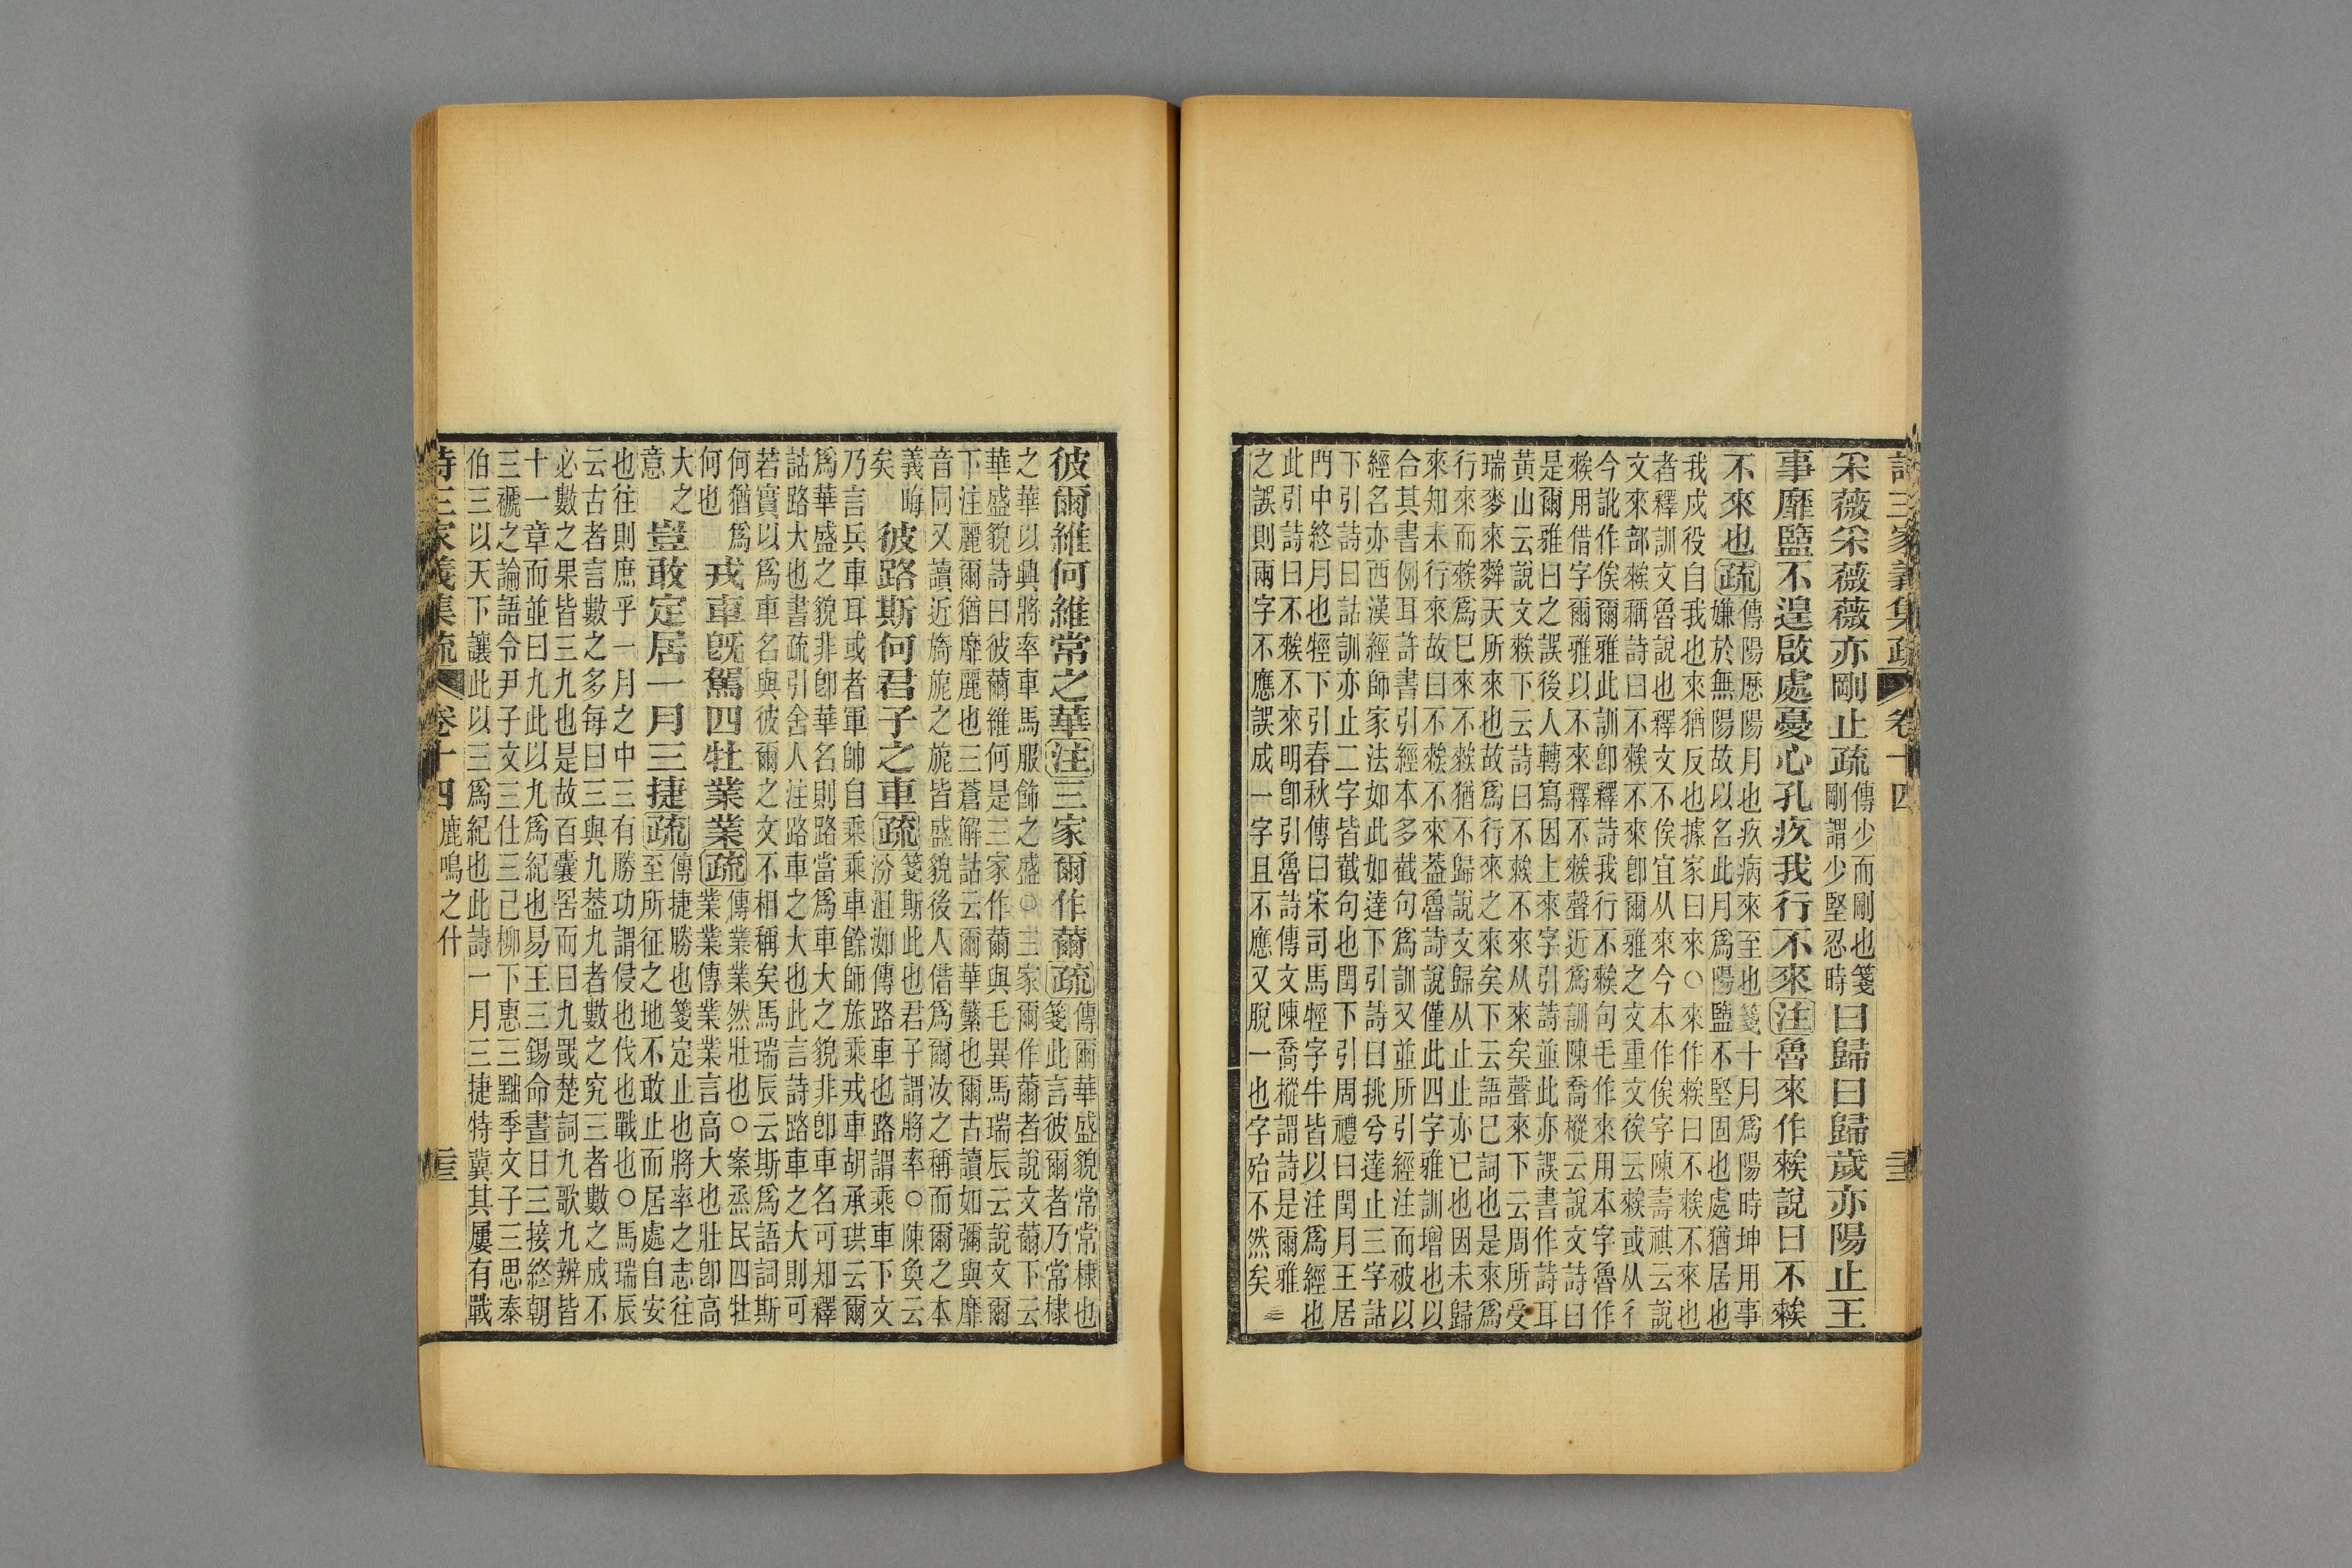 詩三家義集疏 卷十四
采薇采薇薇亦剛止疏傳少而剛也箋
剛謂少堅忍時曰歸曰歸歲亦陽止王
事靡盬不遑啟處憂心孔疚我行不來注魯來作𥏳說曰不𥏳
不來也疏傳陽歷陽月也疚病來至也箋十月爲陽時坤用事
嫌於無陽故以名此月爲陽盬不堅固也處猶居也
我戍役自我也來猶反也據家曰來○來作𥏳曰不𥏳不來也
者釋訓文魯說也釋文不俟宜从來今本作俟字陳壽祺云說
文來部𥏳稱詩曰不𥏳不來卽爾雅之文重文㣣云𥏳或从彳
今訛作俟爾雅此訓卽釋詩我行不𥏳句毛作來用本字魯作
𥏳用借字爾雅以不來釋不𥏳聲近爲訓陳喬樅云說文詩曰
是爾雅曰之誤後人轉寫因上來字引詩並此亦誤書作詩耳
黃山云說文𥏳下云詩曰不𥏳不來从來矣聲來下云周所受
瑞麥來麰天所來也故爲行來之來矣下云語已詞也是來爲
行來而𥏳爲已來不𥏳猶不歸說文歸从止止亦已也因未歸
來知未行來故曰不𥏳不來葢魯詩說僅此四字雅訓增也以
合其書側耳許書引經本多截句爲訓又並所引經注而被以
經名亦西漢經師家法如此如達下引詩曰挑兮達止三字詁
下引詩曰詁訓亦止二字皆截句也閏下引周禮曰閏月王居
門中終月也牼下引春秋傳曰宋司馬牼字牛皆以注爲經也
此引詩曰不𥏳不來明卽引魯詩傳文陳喬樅謂詩是爾雅
之誤則兩字不應誤成一字且不應又脫一也字殆不然矣
彼爾維何維常之華注三家爾作薾疏傳爾華盛貌常常棣也
箋此言彼爾者乃常棣
之華以興將率車馬服飾之盛○三家爾作薾者說文薾下云
華盛貌詩曰彼薾維何是三家作薾與毛異馬瑞辰云說文爾
下注麗爾猶靡麗也三蒼解詁云爾華蘩也爾古讀如彌與靡
音同又讀近旖旎之旎皆盛貌後人借爲爾汝之稱而爾之本
義晦
矣彼路斯何君子之車疏箋斯此也君子謂將率○陳奐云
汾沮洳傳路車也路謂乘車下文
乃言兵車耳或者軍帥自乘乘車餘師旅乘戎車胡承珙云爾
爲華盛之貌非卽華名則路當爲車大之貌非卽車名可知釋
詁路大也書疏引舍人注路車之大也此言詩路車之大則可
若實以爲車名與彼爾之文不相稱矣馬瑞辰云斯爲語詞斯
何猶爲
何也戎車旣駕四牡業業疏傳業業然壯也○案烝民四牡
業業傳業業言高大也壯卽高
大之
意豈敢定居一月三捷疏傳捷勝也箋定止也將率之志往
至所征之地不敢止而居處自安
也往則庶乎一月之中三有勝功謂侵也伐也戰也○馬瑞辰
云古者言數之多每曰三與九葢九者數之究三者數之成不
必數之果皆三九也是故百囊罟而曰九罭楚詞九歌九辨皆
十一章而並曰九此以九爲紀也易王三錫命晝日三接終朝
三褫之論語令尹子文三仕三已柳下惠三黜季文子三思泰
伯三以天下讓此以三爲紀也此詩一月三捷特冀其屢有戰
詩三家義集疏 卷十四 鹿鳴之什